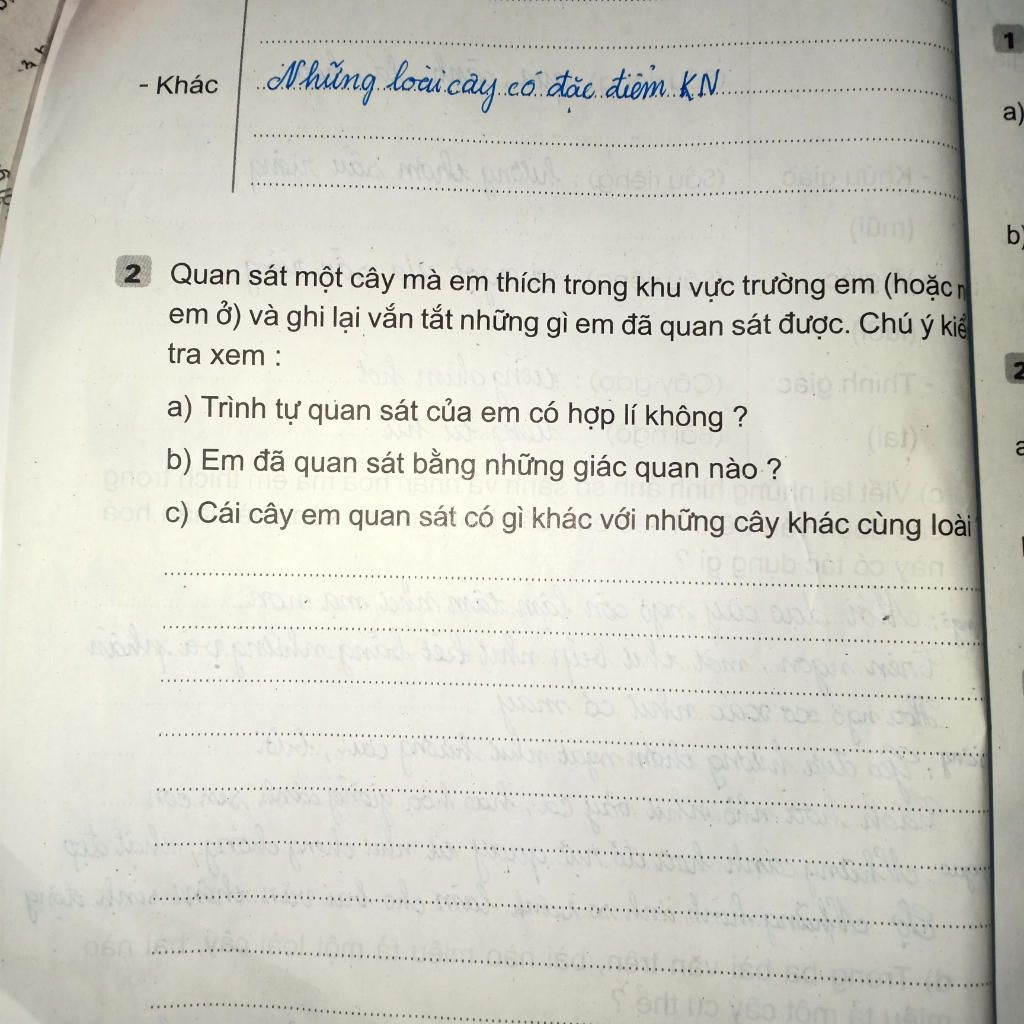 - Khác Những loài cây có đặc điểm KN
2 Quan sát một cây mà em thích trong khu vực trường em (hoặc
em ở) và ghi lại vắn tắt những gì em đã quan sát được. Chú ý
tra xem :
a) Trình tự quan sát của em có hợp lí không ?
b) Em đã quan sát bằng những giác quan nào ?
c) Cái cây em quan sát có gì khác với những cây khác cùng loài
1
a)
b)
2
a